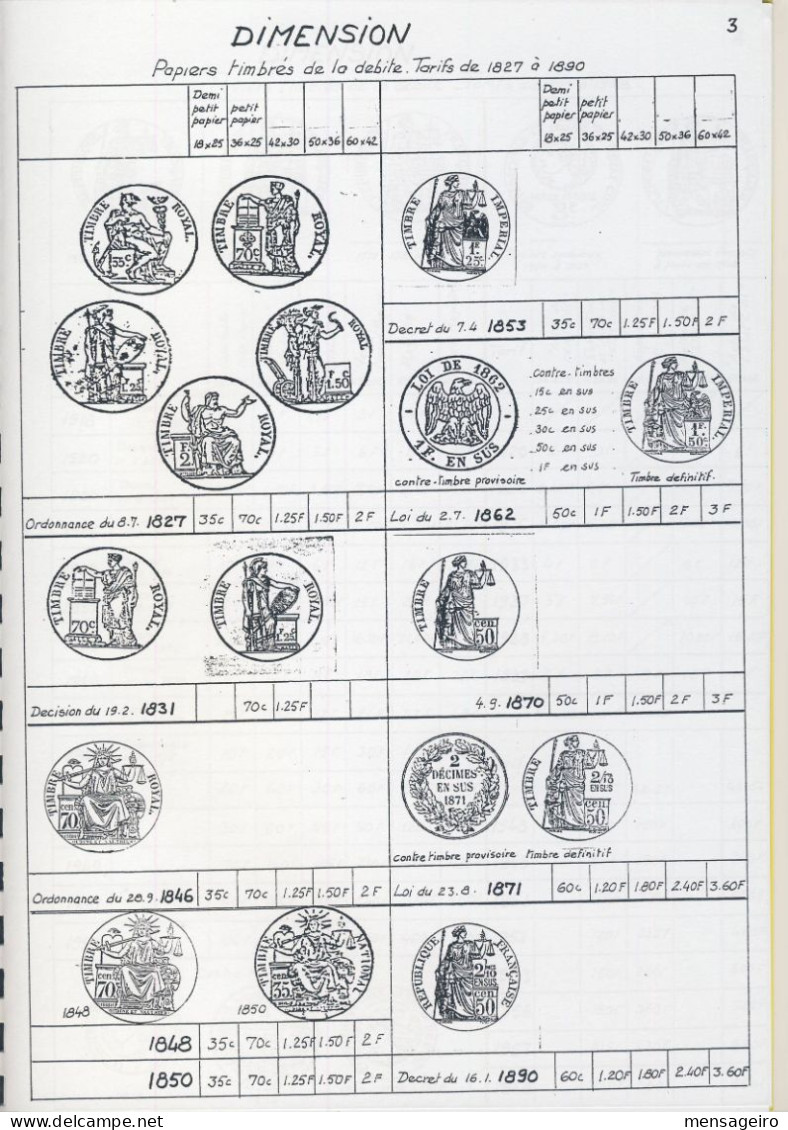 3
DIMENSION
Papiers timbrés de la debite. Tarifs de 1827 à 1890
Demi petit papier 18x25 petit papier 36x25 42x30 50x36 60x42
TIMBRE ROYAL. 35c
TIMBRE ROYAL. 70c
TIMBRE ROYAL 1.25
TIMBRE ROYAL F C 1.50
TIMBRE ROYAL. F. 2
Ordonnance du 8.7. 1827 35c 70c 1.25F 1.50F 2F
TIMBRE ROYAL. 70c
TIMBRE ROYAL. 1.25
Decision du 19.2. 1831 70c 1.25F
TIMBRE ROYAL. cen 70
Ordonnance du 28.9. 1846 35c 70c 1.25F 1.50F 2F
TIMBRE cen 70
1848
TIMBRE NATIONAL cen 35
1850
1848 35c 70c 1.25F 1.50F 2F
1850 35c 70c 1.25F 1.50F 2F
Demi petit papier 18x25 petit papier 36x25 42x30 50x36 60x42
TIMBRE IMPERIAL. 1F. 25c
Decret du 7.4 1853 35c 70c 1.25F 1.50F 2F
LOI DE 1862 1F. EN SUS
contre-timbre provisoire
Contre-timbres
15c en sus
25c en sus
30c en sus
50c en sus
1F en sus
TIMBRE IMPERIAL. 1F. 50c
Timbre definitif.
Loi du 2.7. 1862 50c 1F 1.50F 2F 3F
TIMBRE cen 50
4.9. 1870 50c 1F 1.50F 2F 3F
2 DÉCIMES EN SUS 1871
TIMBRE 2/10 EN SUS cen 50
contre timbre provisoire timbre definitif
Loi du 23.8. 1871 60c 1.20F 1.80F 2.40F 3.60F
RÉPUBLIQUE FRANÇAISE. 2/10 EN SUS cen 50
Decret du 16.1. 1890 60c 1.20F 1.80F 2.40F 3.60F
mensageiro